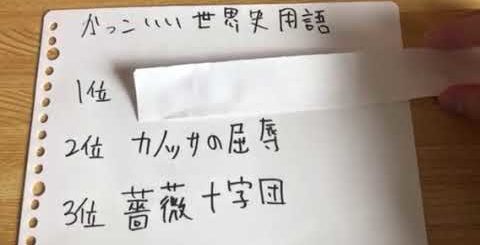 かっこいい世界史用語
1位
2位 カノッサの屈辱
3位 薔薇十字団